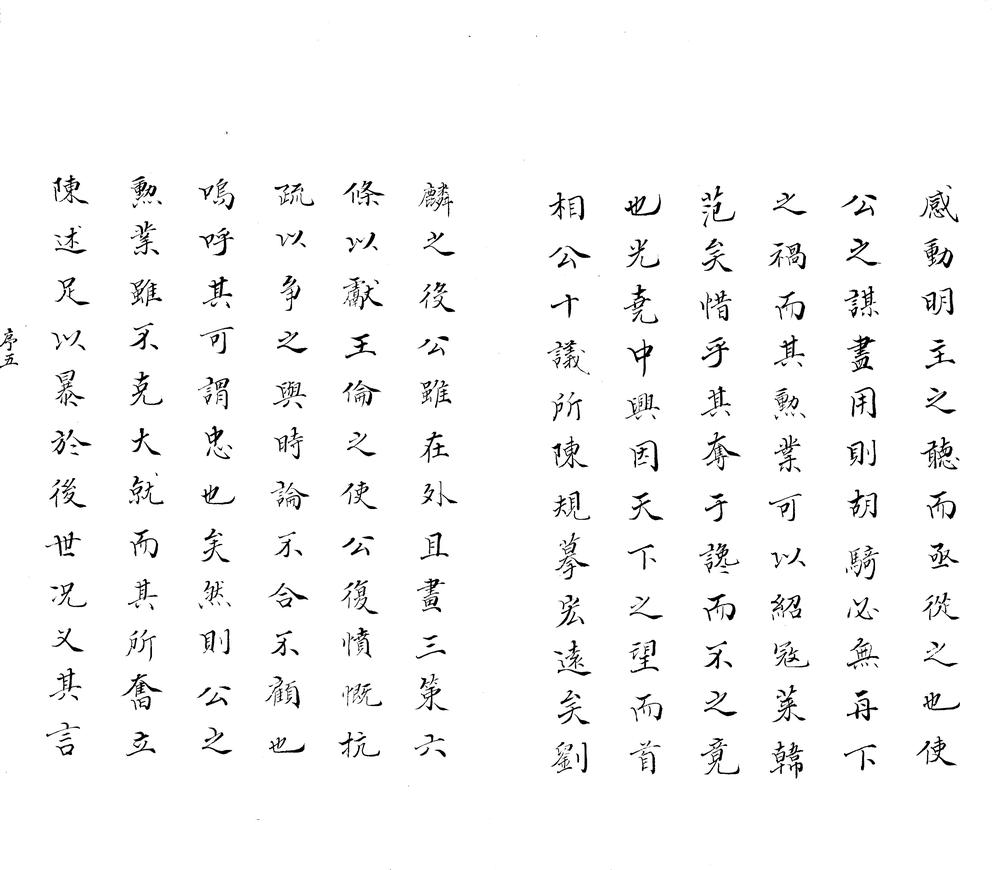 感動明主之聽而亟從之也使
公之謀盡用則胡騎必無再下
之禍而其勲業可以紹冦萊韓
范矣惜乎其奪于讒而不之竟
也光堯中興因天下之望而首
相公十議所陳規摹宏遠矣劉
麟之役公雖在外且畫三策六
條以獻王倫之使公復憤慨抗
疏以争之與時論不合不顧也
嗚呼其可謂忠也矣然則公之
勲業雖不克大就而其所奮立
陳述足以暴於後世况乂其言
序五